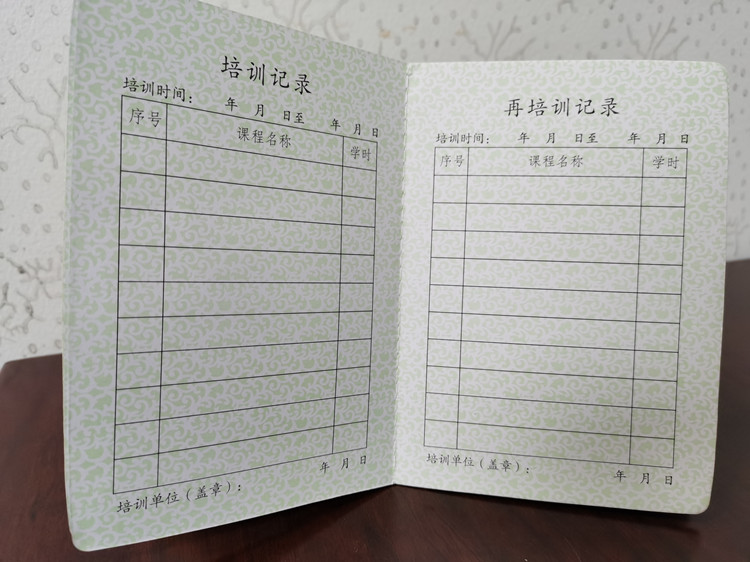 培训记录
培训时间： 年 月 日至 年 月 日
序号 课程名称 学时
培训单位(盖章)： 年 月 日
再培训记录
培训时间： 年 月 日至 年 月 日
序号 课程名称 学时
培训单位(盖章)： 年 月 日